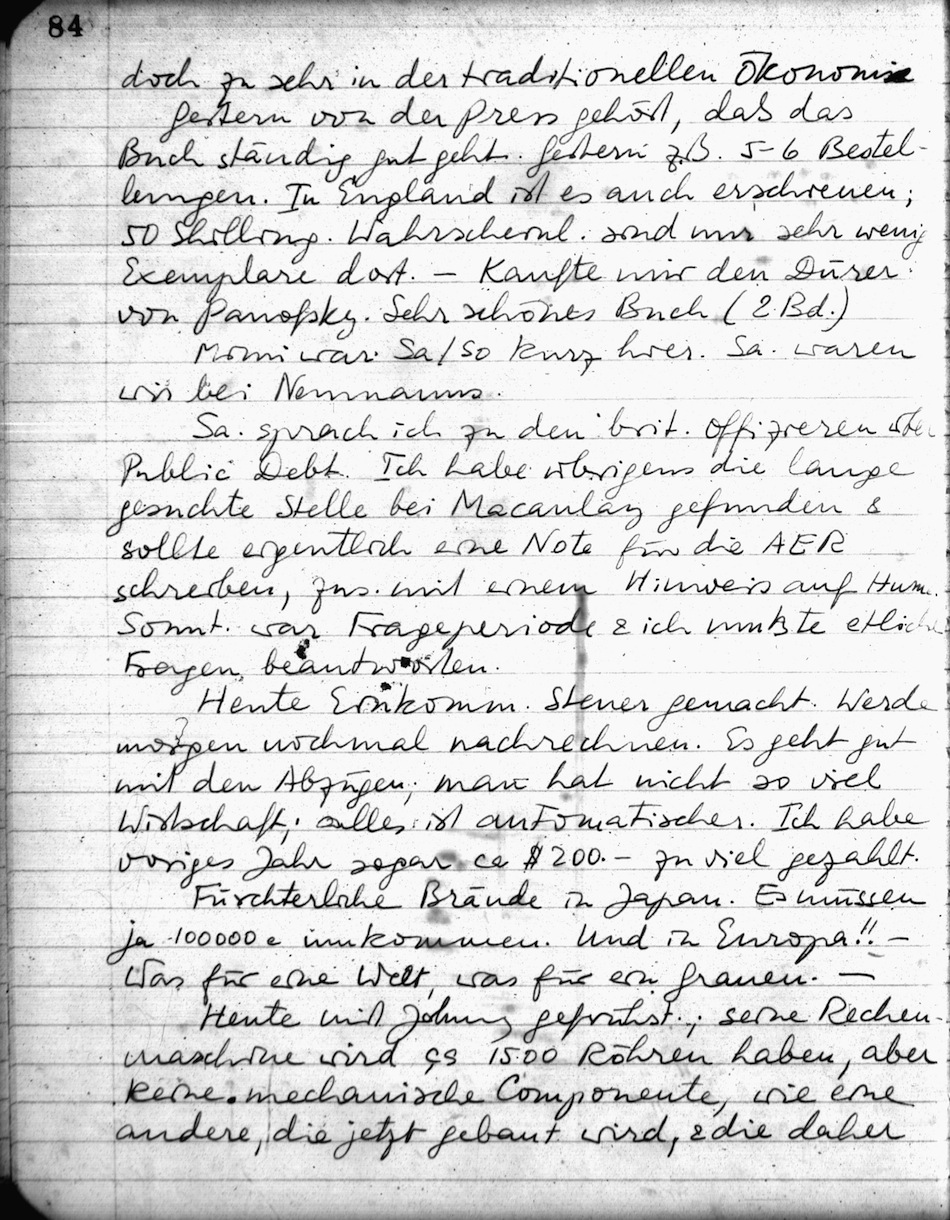 84
doch zu sehr in der traditionellen Ökonomie
Gestern von der Press gehört, daß das
Buch ständig gut geht. Gestern z.B. 5-6 Bestel-
lungen. In England ist es auch erschienen;
50 Shilling. Wahrscheinl. sind nur sehr wenig
Exemplare dort. – Kaufte mir den Dürer
von Panofsky. Sehr schönes Buch (2 Bd.)
Mimi war Sa/So kurz hier. Sa. waren
wir bei Neumanns.
Sa. sprach ich zu den brit. Offizieren über
Public Debt. Ich habe übrigens die lange
gesuchte Stelle bei Macaulay gefunden &
sollte eigentlich eine Note für die AER
schreiben, zus. mit einem Hinweis auf Hume.
Sonnt. war Frageperiode & ich mußte etliche
Fragen beantworten.
Heute Einkomm. Steuer gemacht. Werde
morgen nochmal nachrechnen. Es geht gut
mit den Abzügen; man hat nicht so viel
Wirtschaft; alles ist automatischer. Ich habe
voriges Jahr sogar ca $200.– zu viel gezahlt.
Fürchterliche Brände in Japan. Es müssen
ja 100000e umkommen. Und in Europa!! –
Was für eine Welt, was für ein Grauen. –
Heute mit Johnny gefrühst.; seine Rechen-
maschine wird 1500 Röhren haben, aber
keine mechanische Componente, wie eine
andere, die jetzt gebaut wird, & die daher